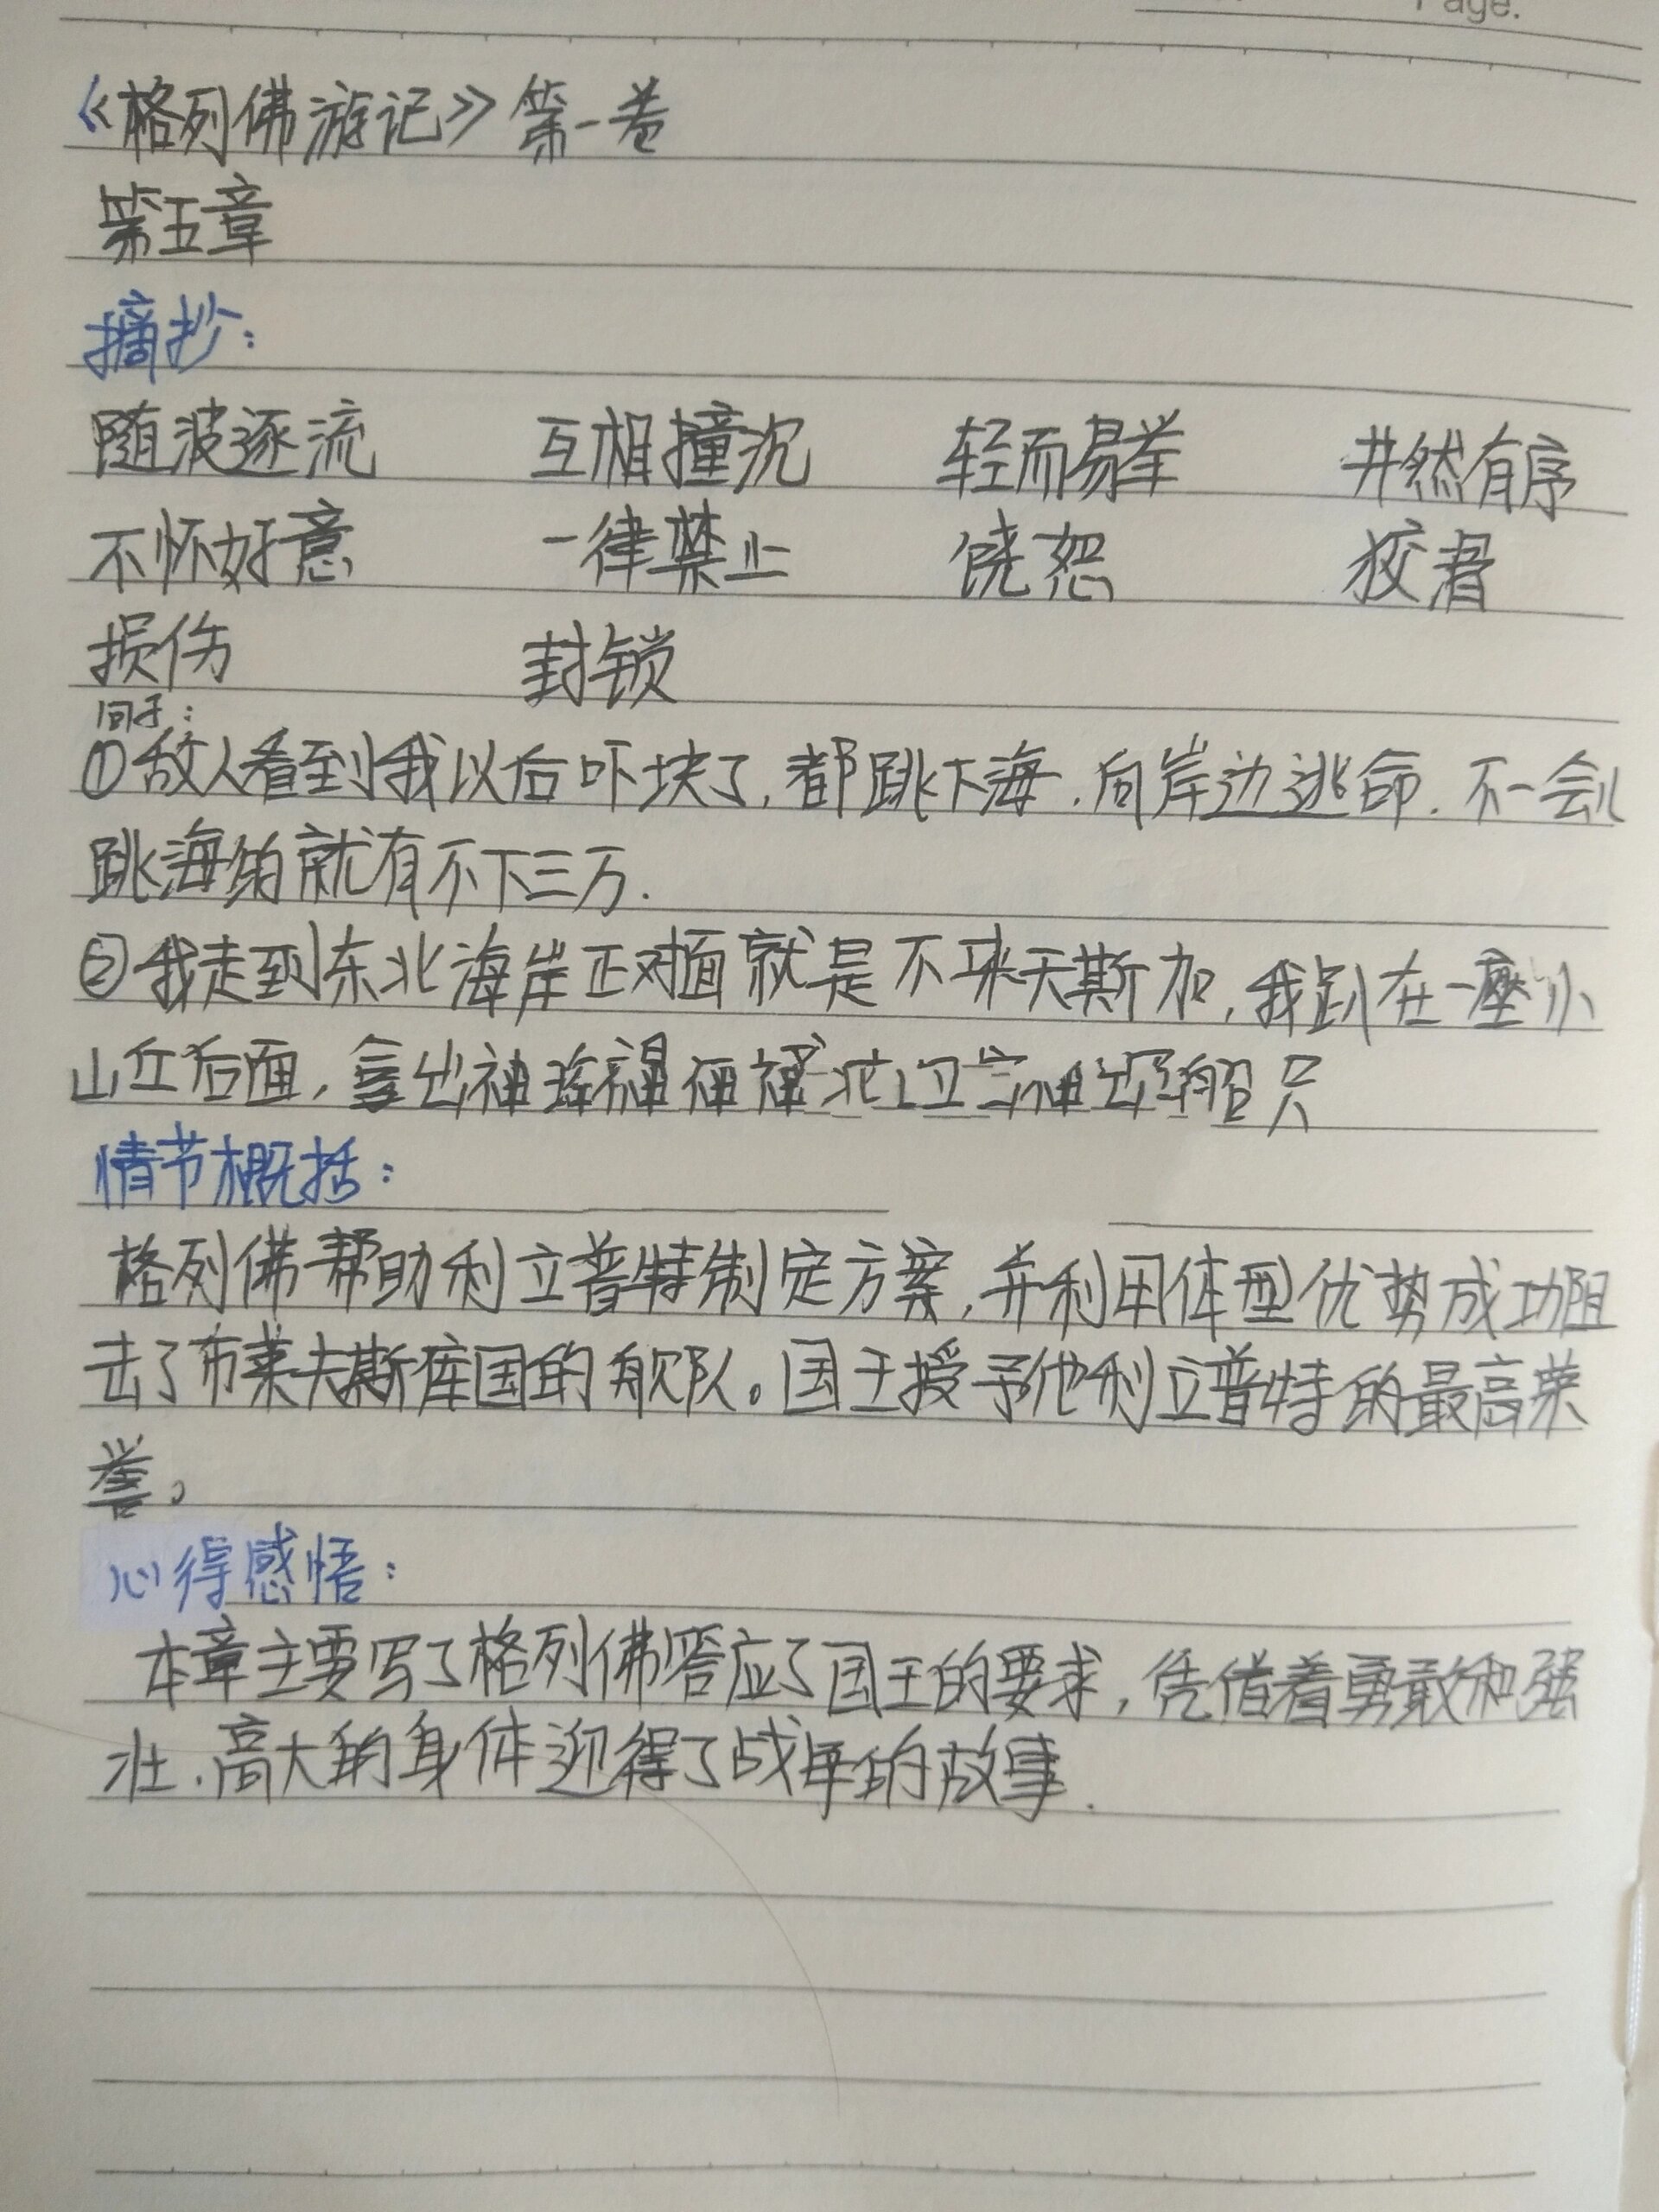 Page.
《格列佛游记》第一卷
第五章
摘抄：
随波逐流 互相撞沉 轻而易举 井然有序
不怀好意 一律禁止 饶恕 狡猾
损伤 封锁
句子：
①敌人看到我以后吓坏了，都跳下海，向岸边逃命．不一会儿
跳海的就有不下三万．
②我走到东北海岸正对面就是不来夫斯加，我趴在一座小
山丘后面，拿出袖珍 船只
情节概括：
格列佛帮助利立普特制定方案，并利用体型优势成功阻
击了布莱夫斯库国的舰队。国王授予他利立普特的最高荣
誉。
心得感悟：
本章主要写了格列佛答应了国王的要求，凭借着勇敢和强
壮、高大的身体迎得了战争的故事．